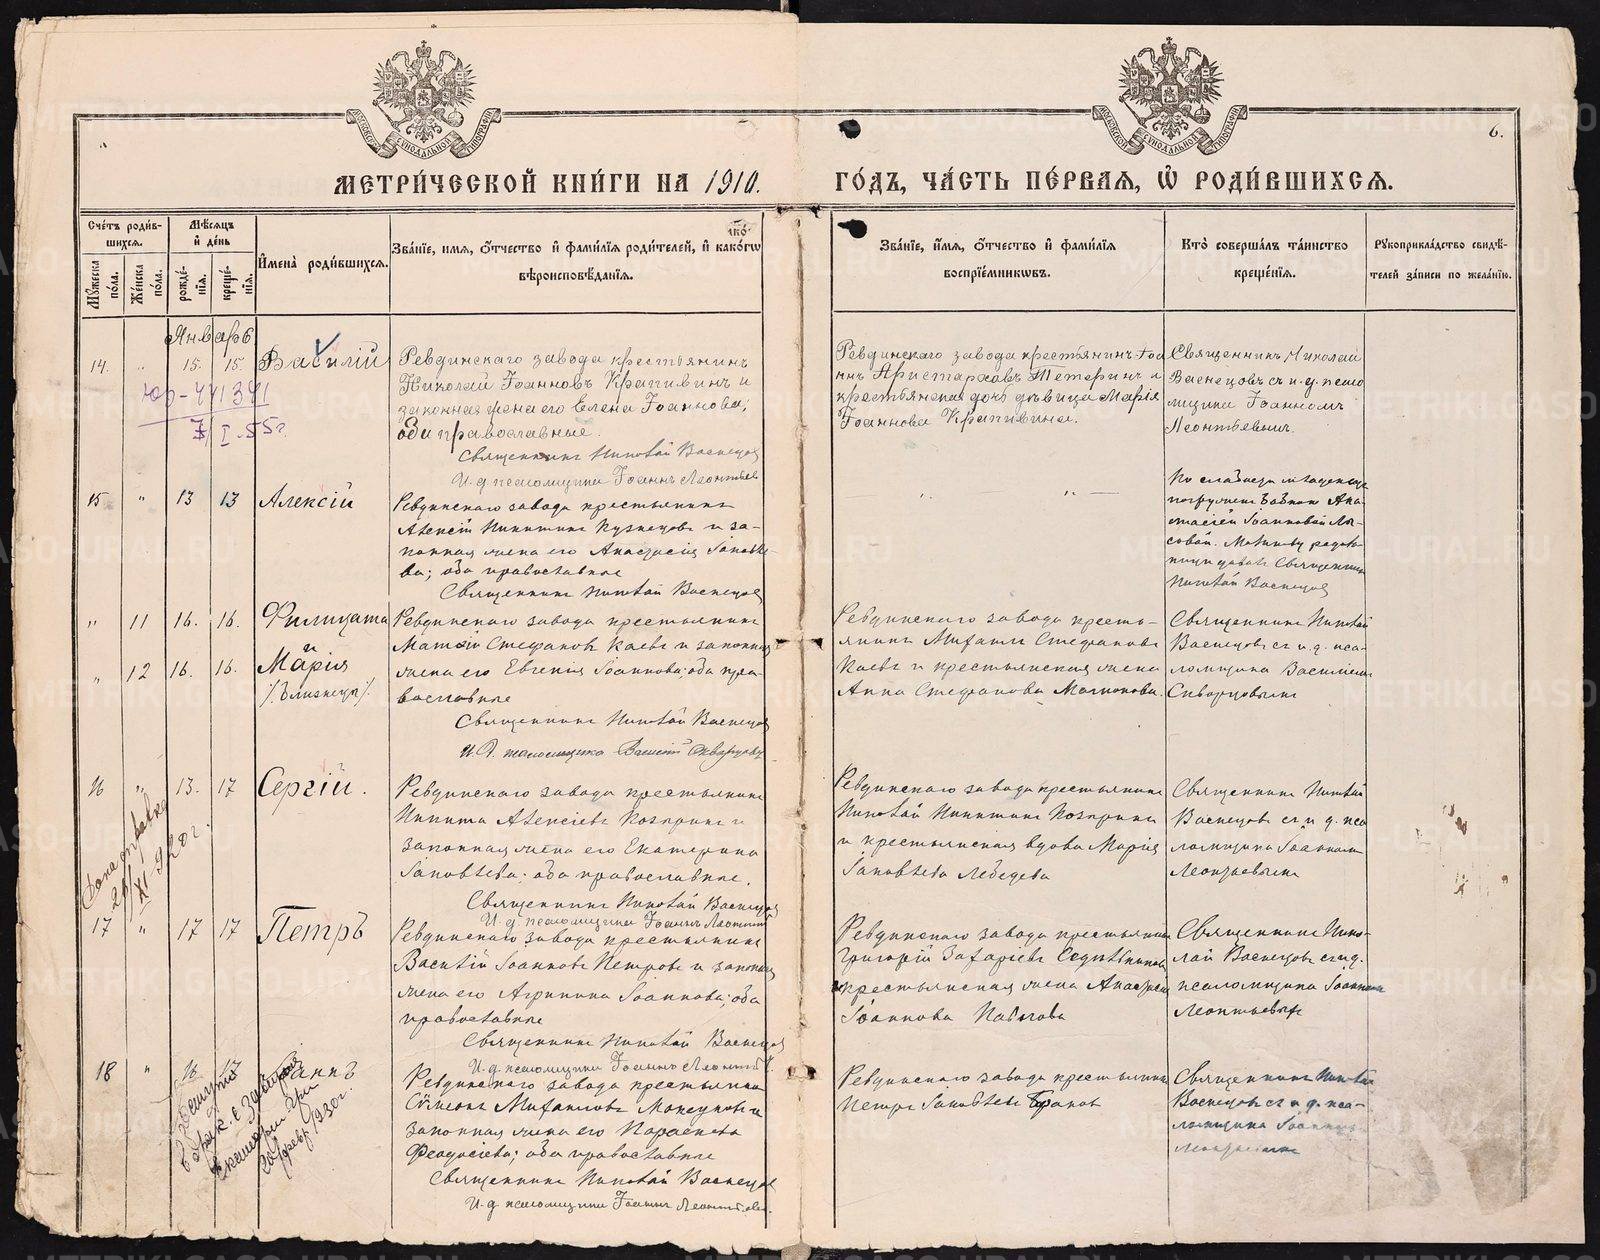 МЕТРИ́ЧЕСКОЙ КНИ́ГИ НА 1910.
ГО́ДЪ, ЧА́СТЬ ПЕ́РВАЯ, Ѡ҆ РОДИ́ВШИХСЯ.
6.
Сче́тъ роди́в-
шихся.
Му́жеска по́ла.
Же́нска по́ла.
Мѣ́сяцъ
и҆ де́нь
рожде́-
нїя.
креще́-
нїя.
И҆мена̀ роди́вшихся.
Зва́нїе, имя, ѻ҆́тчество и҆ фами́лїя роди́телей, и҆ како́гѡ
вѣроисповѣ́данїя.
Зва́нїе, и҆́мя, ѻ҆́тчество и҆ фами́лїя
воспрїе́мникѡвъ.
Кто̀ соверша́лъ та́инство
креще́нїя.
Рꙋкоприкла́дство свидѣ́-
телей за́писи по жела́нїю.
Январь
14. " 15. 15. Василій
Ревдинскаго завода крестьянинъ
Николай Іоанновъ Крапивинъ и
законная жена его Елена Іоаннова;
оби православные.
Священникъ Николай Васнецов
И. д. псаломщика Іоаннъ Леонтьев
Ревдинскаго завода крестьянинъ Іоан
нъ Аристарховъ Тетеринъ и
крестьянская дочь дѣвица Марія
Іоаннова Крапивина.
Священникъ Николай
Васнецовъ съ и. д. псало
мщика Іоанномъ
Леонтьевымъ.
юр-441341
7/I-55г.
15 " 13 13 Алексій
Ревдинскаго завода крестьянинъ
Алексій Никитинъ Кузнецовъ и за-
конная жена его Анастасія Іаковле-
ва; оба православные
Священникъ Николай Васнецов
" " —
По слабости младенца
погруженъ бабкою Ана-
стасіей Іоанновой
Священникъ
Николай Васнецов
" 11 16. 16. Филицата
и
" 12 16. 16. Марія
/близнецы/.
Ревдинскаго завода крестьянинъ
Матѳій Стефановъ Каевъ и законная
жена его Евгенія Іоаннова; оба пра-
вославные
Священникъ Николай Васнецов
И. д. псаломщика Василій Скворцовъ
Ревдинскаго завода кресть-
янинъ Михаилъ Стефановъ
Каевъ и крестьянская жена
Анна Стефанова Мамонова.
Священникъ Николай
Васнецовъ съ и. д. пса-
ломщика Василіемъ
Скворцовымъ
16 " 13. 17 Сергій.
Ревдинскаго завода крестьянинъ
Никита Алексіевъ Козыринъ и
законная жена его Екатерина
Іаковлева; оба православные.
Священникъ Николай Васнецов
И. д. псаломщика Іоаннъ Леонтьев
Ревдинскаго завода крестьянинъ
Николай Никитинъ Козыринъ
и крестьянская вдова Марія
Іаковлева Лебедева
Священникъ Николай
Васнецовъ съ и. д. пса
ломщика Іоанномъ
Леонтьевымъ
Дана справка
17 " 17 17 Петръ
Ревдинскаго завода крестьянинъ
Василій Іоанновъ Петровъ и законная
жена его Агриппина Іоаннова; оба
православные
Священникъ Николай Васнецов
И. д. псаломщика Іоаннъ Леонтьев
Ревдинскаго завода крестьянинъ
Григорій Захаріевъ
крестьянская жена Анастасія
Іоаннова
Священникъ Нико-
лай Васнецовъ съ и д.
псаломщика Іоанномъ
Леонтьевымъ
18 " 16 17 Іоаннъ
Ревдинскаго завода крестьянинъ
Сѵмеонъ Михаиловъ и
законная жена его Параскева
Ѳеодосіева; оба православные
Священникъ Николай Васнецов
И. д. псаломщика Іоаннъ Леонтьев.
Ревдинскаго завода крестьянинъ
Петръ Іаковлевъ
Священникъ Николай
Васнецовъ съ и. д. пса-
ломщика Іоанномъ
Леонтьевымъ